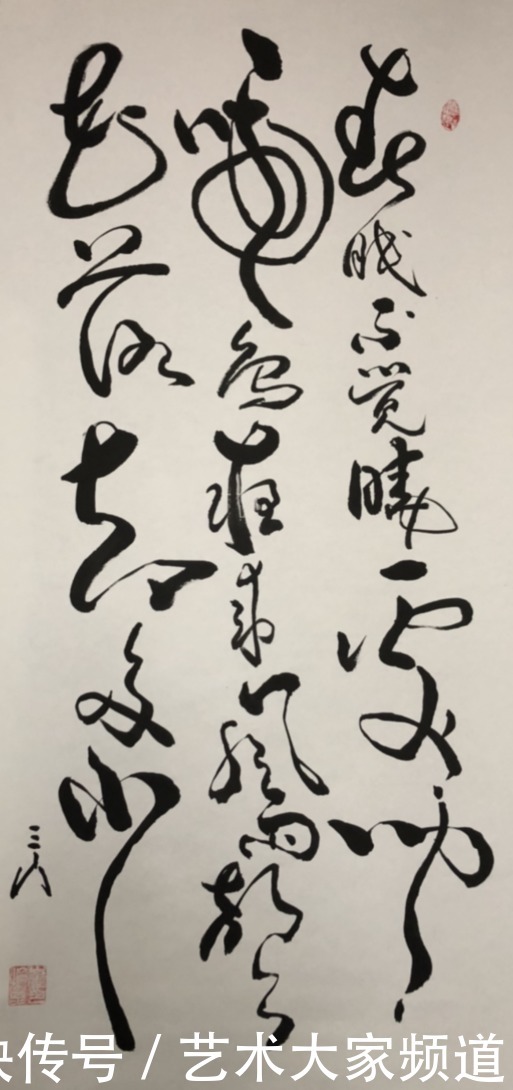 春眠不觉晓处处闻
啼鸟夜来风雨声
花落知多少
快传号 / 艺术大家频道